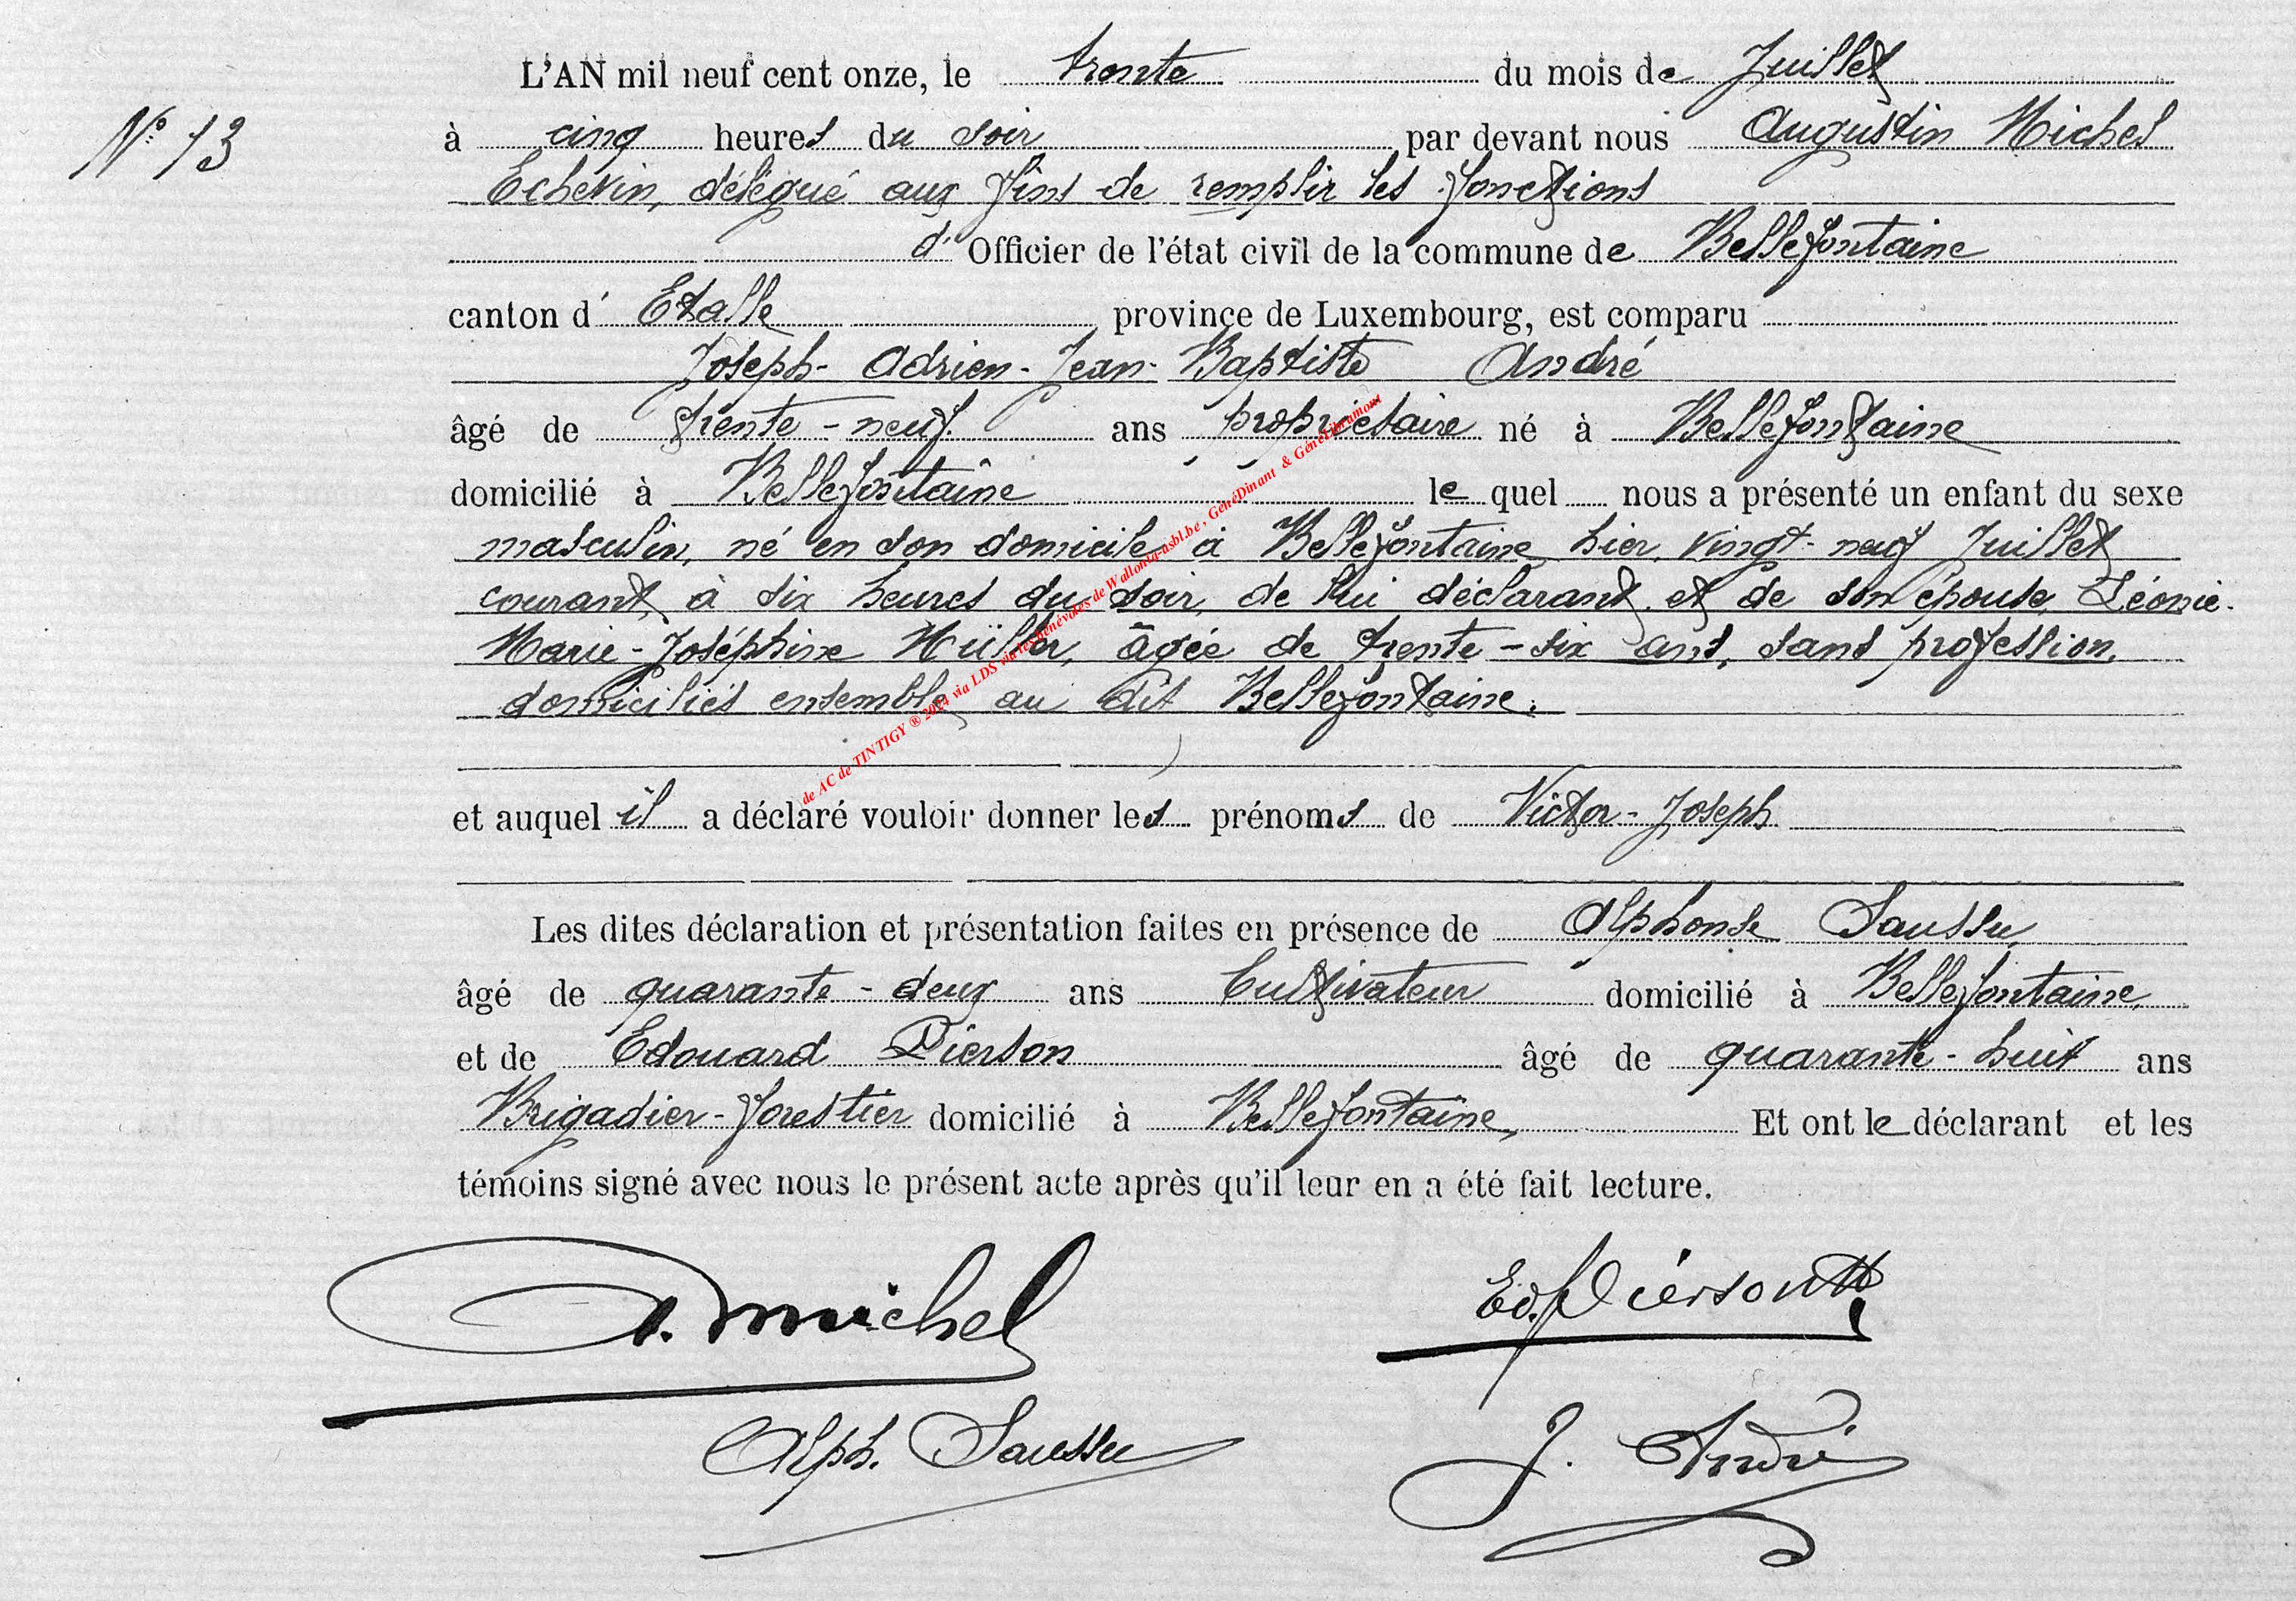 L'AN mil neuf cent onze, le trente du mois de Juillet
N° 13
à cinq heures du soir par devant nous Augustin Michel
Echevin, délégué aux fins de remplir les fonctions
d' Officier de l'état civil de la commune de Bellefontaine
canton d' Etalle province de Luxembourg, est comparu
Joseph-Adrien-Jean-Baptiste André
âgé de trente-neuf ans propriétaire né à Bellefontaine
domicilié à Bellefontaine le quel nous a présenté un enfant du sexe
masculin, né en son domicile à Bellefontaine hier, vingt-neuf Juillet
courant, à six heures du soir, de lui déclarant et de son épouse Léonie-
Marie-Joséphine Müller, âgée de trente-six ans, sans profession,
domiciliés ensemble au dit Bellefontaine.
et auquel il a déclaré vouloir donner les prénoms de Victor-Joseph
Les dites déclaration et présentation faites en présence de Alphonse Saussu,
âgé de quarante-deux ans Cultivateur domicilié à Bellefontaine,
et de Edouard Pierson âgé de quarante-huit ans
Brigadier-forestier domicilié à Bellefontaine, Et ont le déclarant et les
témoins signé avec nous le présent acte après qu'il leur en a été fait lecture.
A. Michel
Ed. Pierson
Alph. Saussu
J. André
de AC de TINTIGY ® 2024 via LDS via les bénévoles de Wallonia-asbl.be, GénéDinant & GénéLibramont